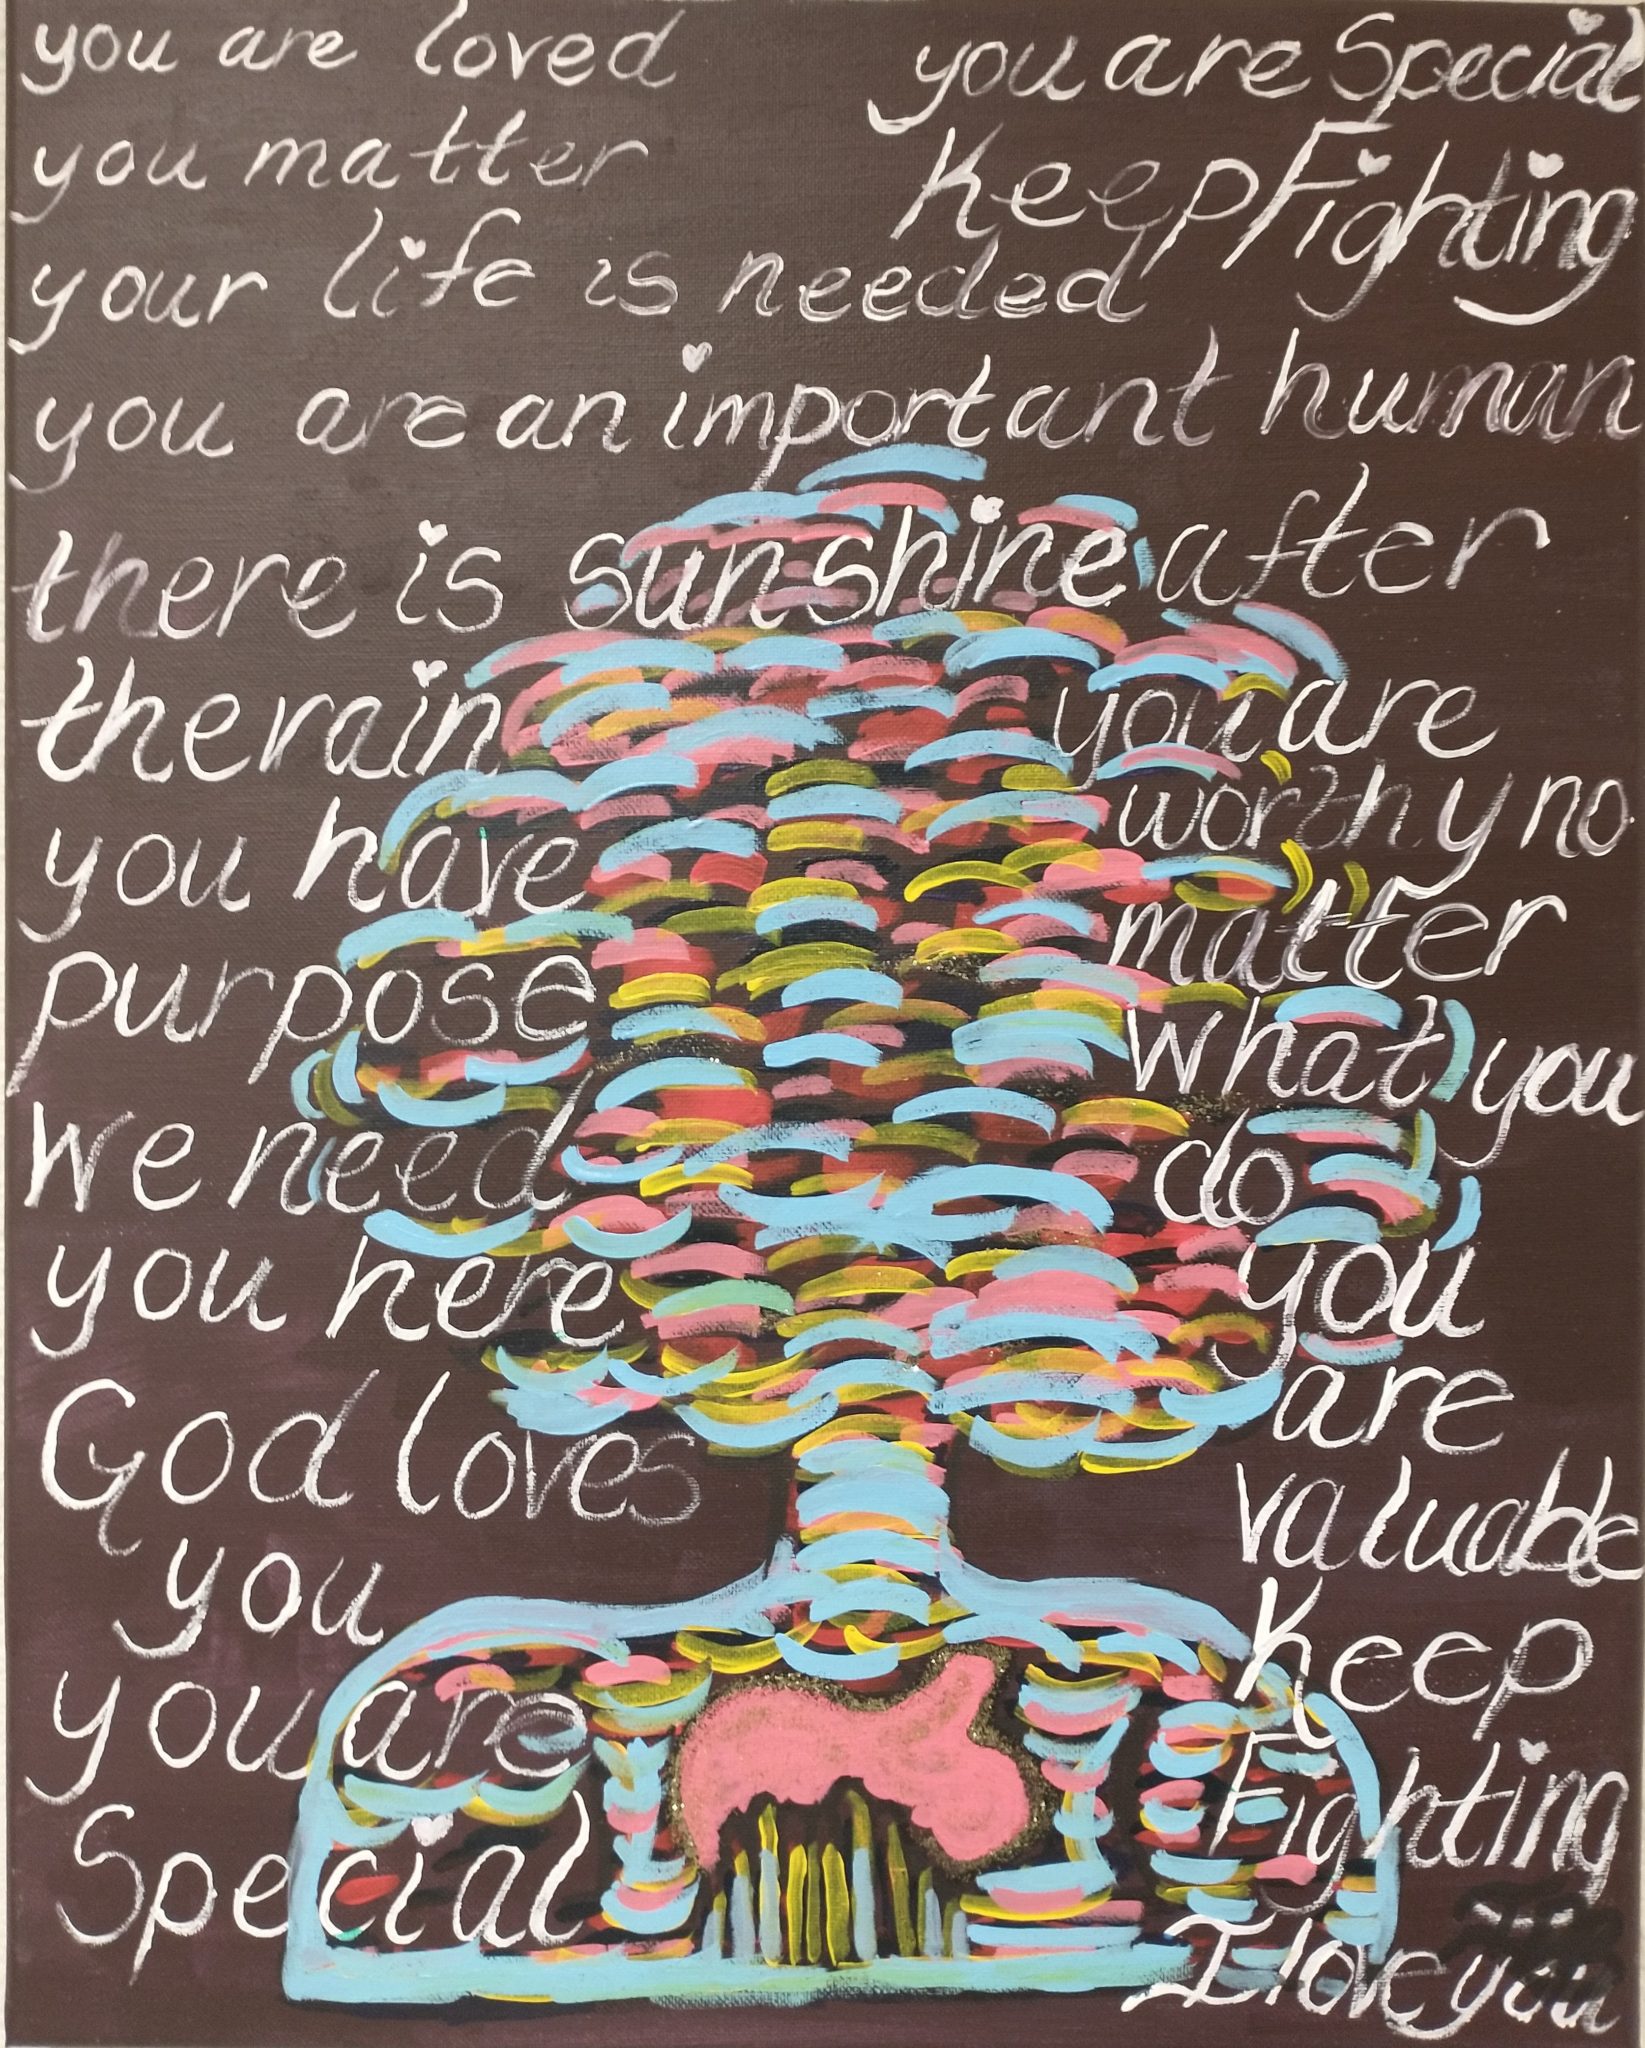 you are loved
you are Special
you matter
Keep Fighting
your life is needed
you are an important human
there is sunshine after
the rain
you have
purpose
We need
you here
God loves
you
you are
Special
you are
worthy no
matter
what you
do
you
are
valuable
Keep
Fighting
I love you